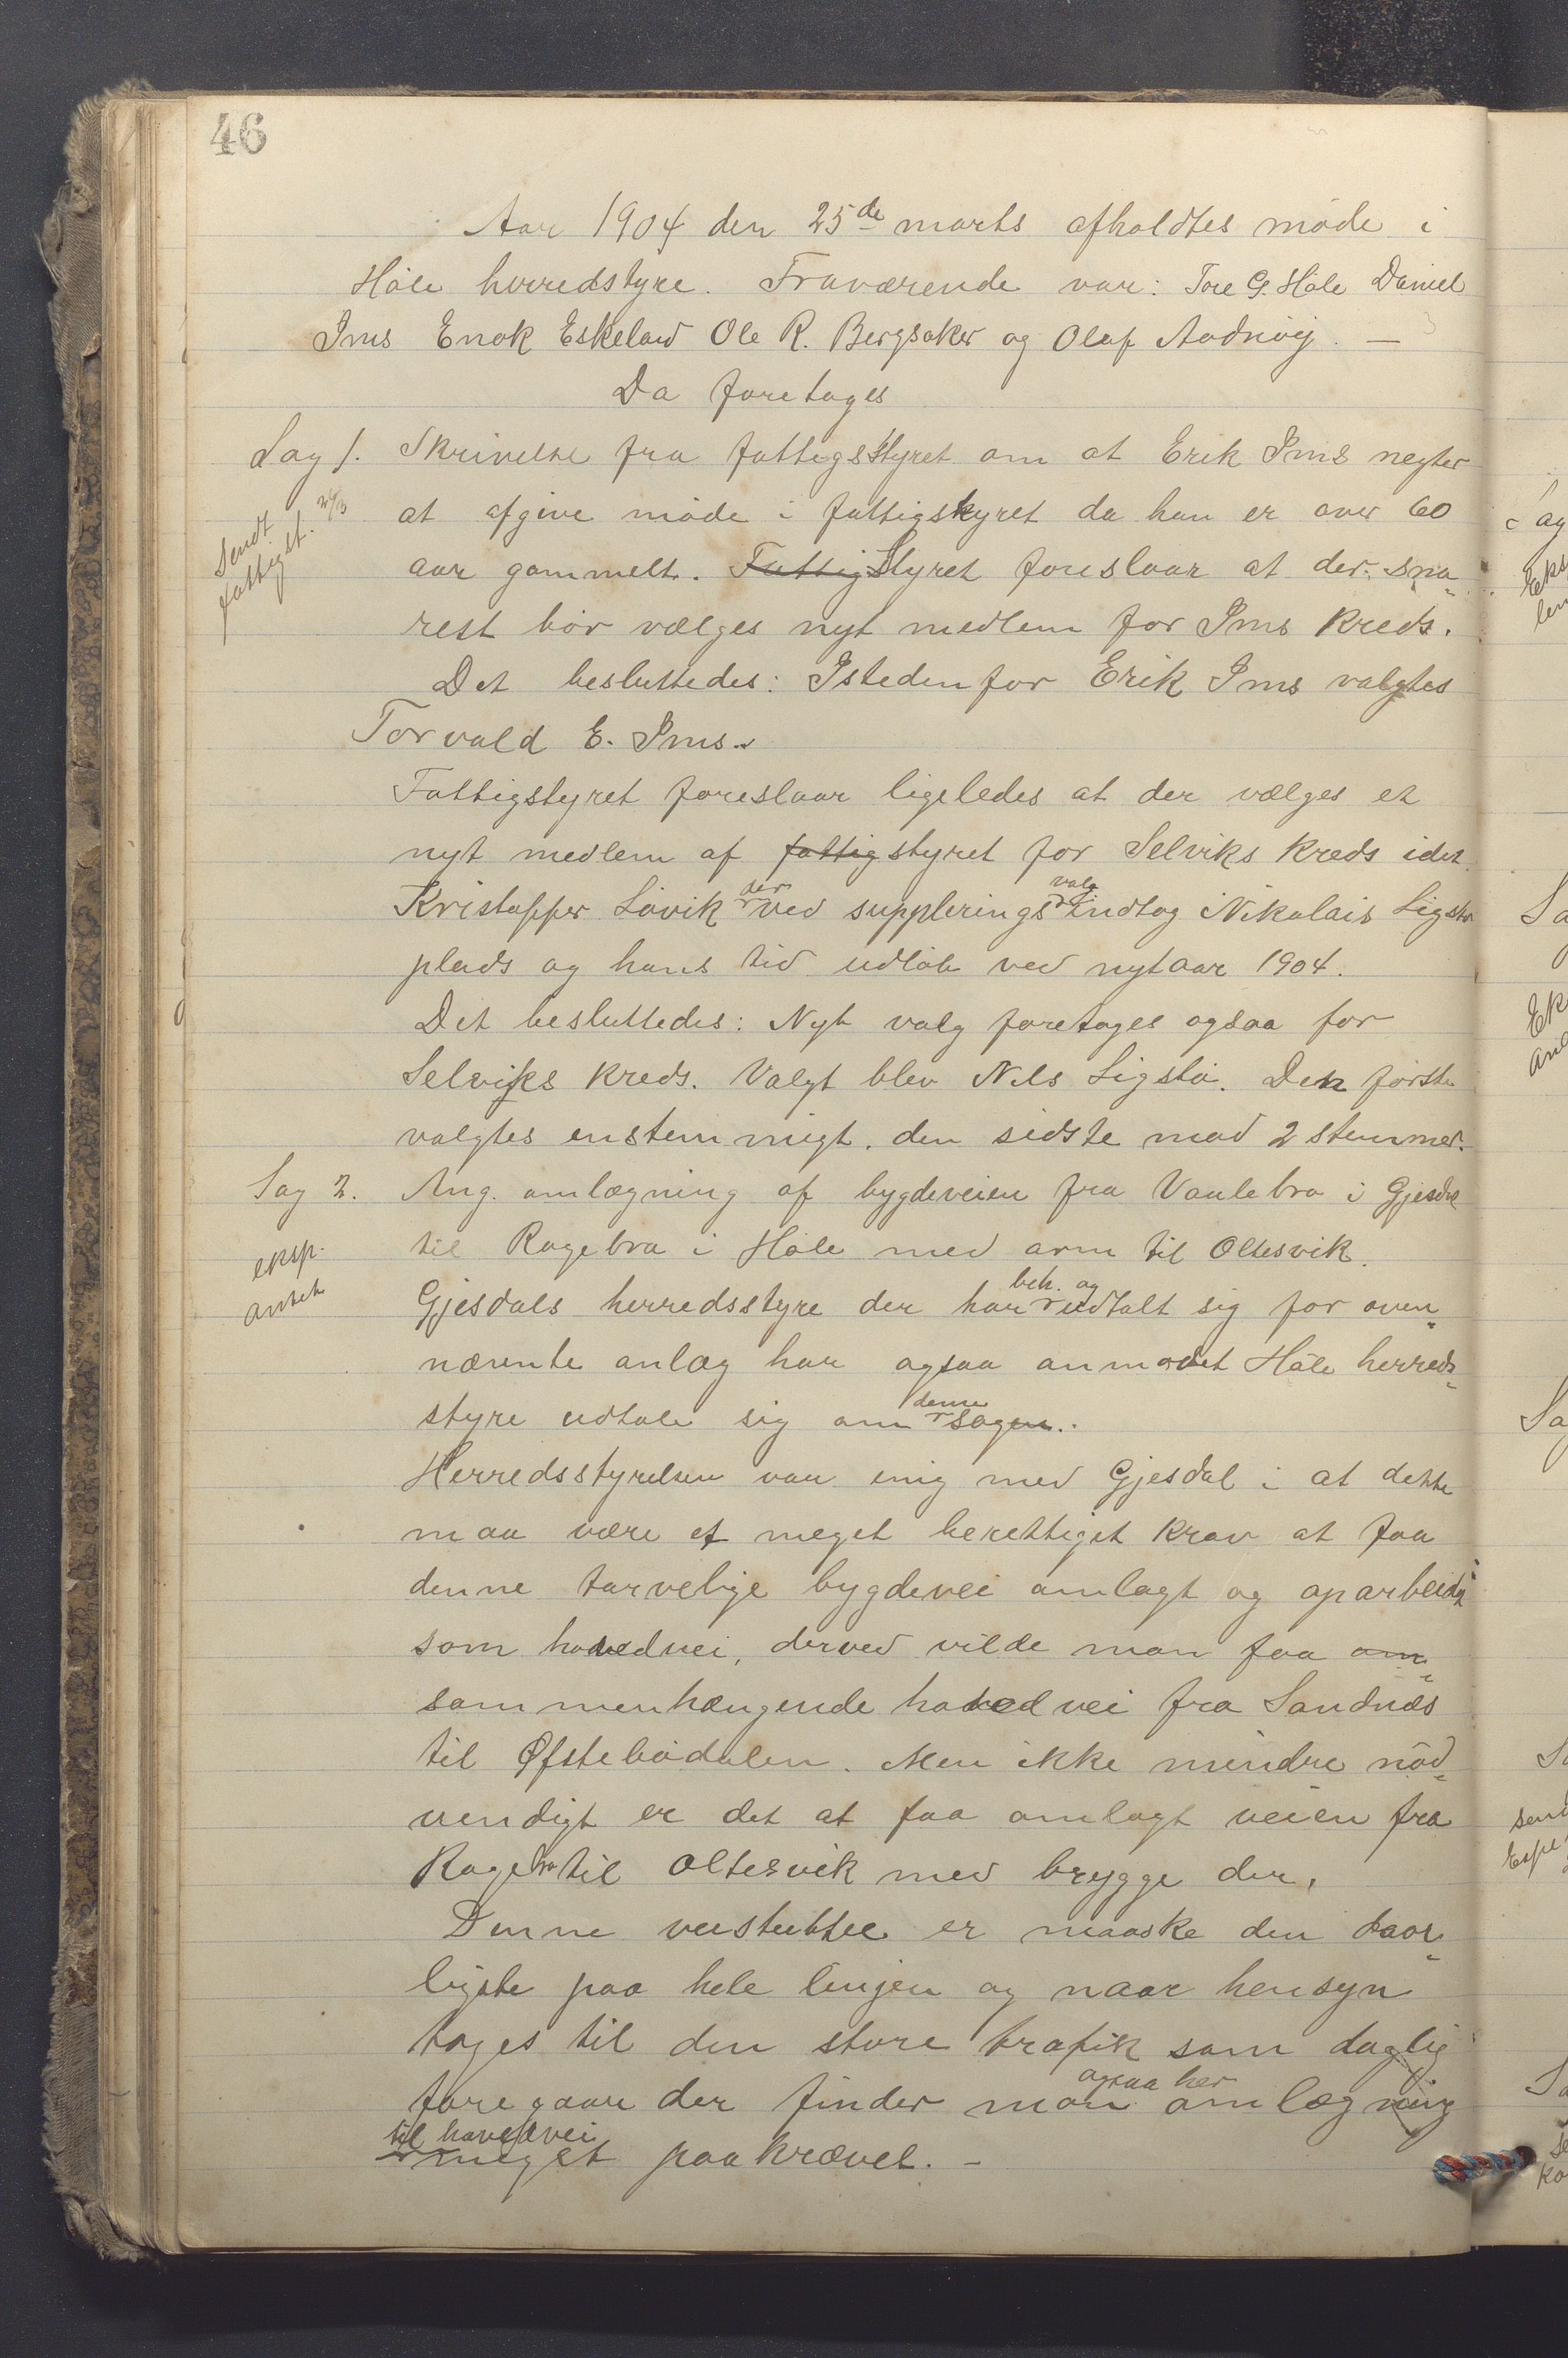 46
Aar 1904 den 25de marts afholdtes møde i
Høle herredstyre. Fraværende var: Tore G. Høle Daniel
Ims Enok Eskeland Ole R. Bergsaker og Olaf Aadnøij. —
Da foretages
Sag 1. Skrivelse fra fattigstyret om at Erik Ims negter
Sendt fattigst.
at afgive møde i fattigstyret da han er over 60
aar gammelt. Fattigstyret foreslaar at der sna-
rest bør vælges nyt medlem for Ims kreds.
Det besluttedes: Istedenfor Erik Ims valgtes
Torvald E. Ims.
Fattigstyret foreslaar ligeledes at der vælges et
nyt medlem af fattigstyret for Selviks kreds idet
Kristoffer Løvik der ved suppleringsvalg indtog Nikolais Ligstø
plads og hans tid udløb ved nytaar 1904.
Det besluttedes: Nyt valg foretages ogsaa for
Selviks kreds. Valgt blev Nils Ligstø. Den første
valgtes enstemmigt. den sidste med 2 stemmer.
Sag 2. Ang. omlægning af bygdeveien fra Vaulebro i Gjesdal
eksp.
til Ragebro i Høle med arm til Oltesvik.
Gjesdals herredsstyre der har beh. og udtalt sig for oven-
nævnte anlæg har ogsaa anmodet Høle herreds-
styre udtale sig om denne sagen.
Herredsstyrelsen var enig med Gjesdal i at dette
maa være et meget berettiget krav at faa
denne tarvelige bygdevei omlagt og oparbeidet
som hovedvei, derved vilde man faa
sammenhængende hovedvei fra Sandnæs
til Øfstebødalen. Men ikke mindre nød-
vendigt er det at faa omlagt veien fra
Ragebro til Oltesvik med brygge der.
Denne er maaske den daar-
ligste paa hele linjen og naar hensyn
tages til den store trafik som daglig
foregaar der finder man ogsaa her omlægning
til hovedvei meget paakrævet. —